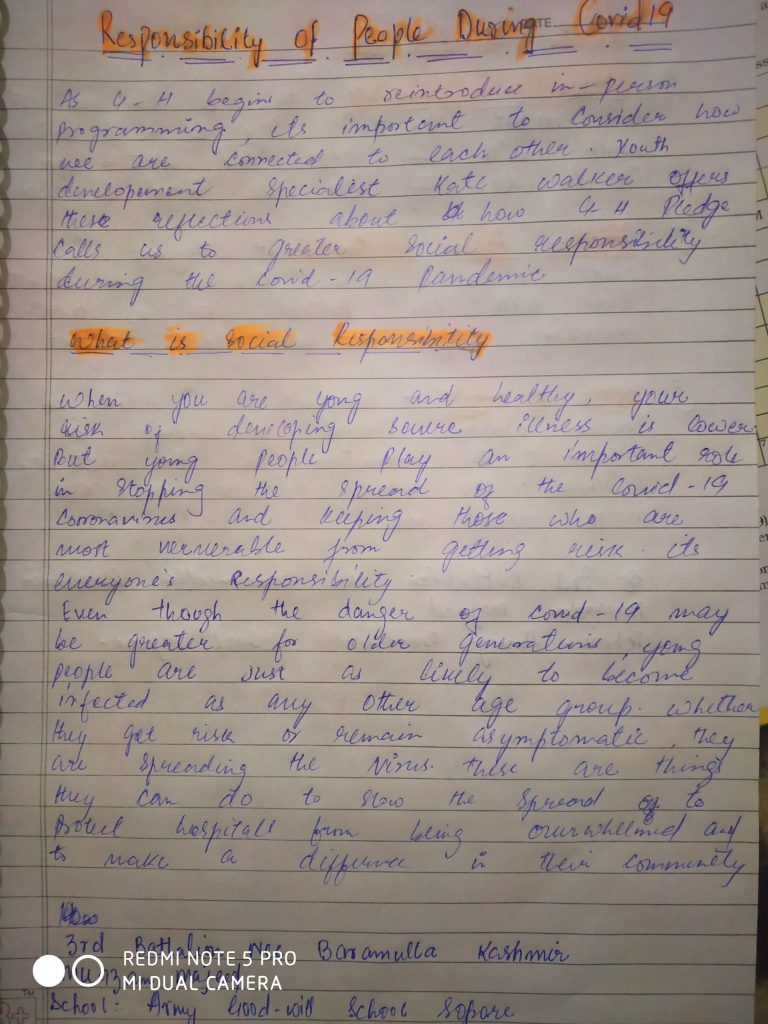 Responsibility of People During Covid19
As 4-H begins to reintroduce in-person
programming, its important to consider how
we are connected to each other. Youth
developement specialist Kate walker offers
these reflections about how 4-H Pledge
calls us to greater social responsibility
during the covid-19 Pandemic.
What is Social Responsibility
When you are yong and healthy, your
risk of developing severe illness is lower
But young people play an important role
in stopping the spread of the Covid-19
Coronavirus and keeping those who are
most vernerable from getting risk. its
everyone's Responsibility.
Even though the danger of covid-19 may
be greater for older generations, yong
people are just as likely to become
infected as any other age group. whether
they get risk or remain asymptomatic, they
are spreading the Virus. these are things
they can do to slow the spread of to
Protect hospitals from being overwhelmed and
to make a difference in their community
3rd Battalion Ncc Baramulla Kashmir
School: Army Good-will School Sopore
REDMI NOTE 5 PRO
MI DUAL CAMERA